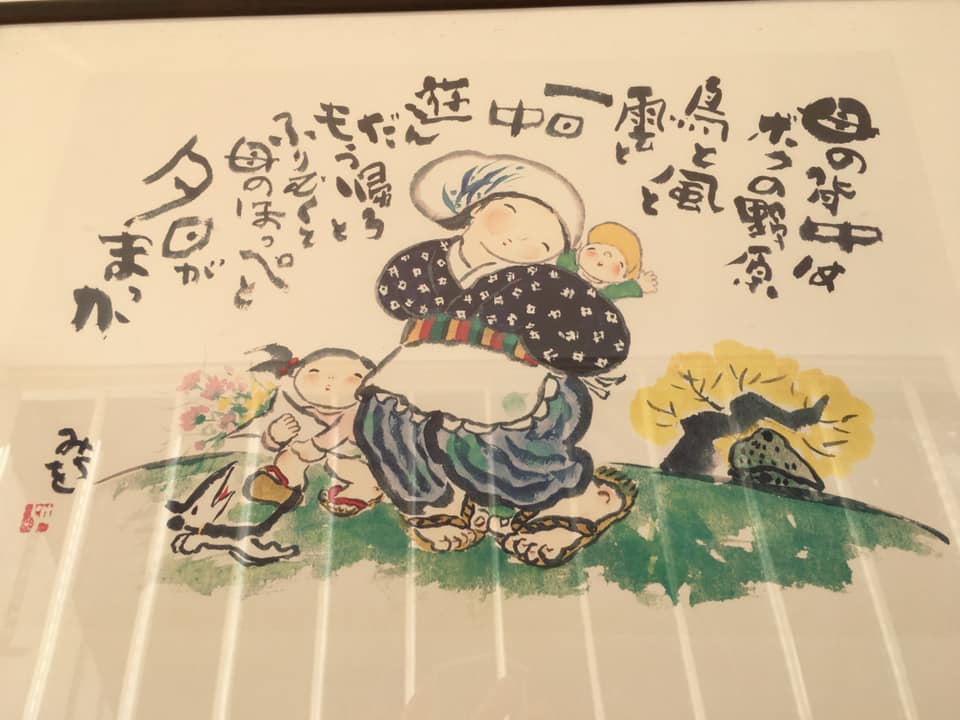 母の背中は
ボクの野原
鳥と風と
雲と
一日中
遊ん
だ帰ろ
もうと
ふりむくと
母のほっぺと
夕日が
まっか
みちを